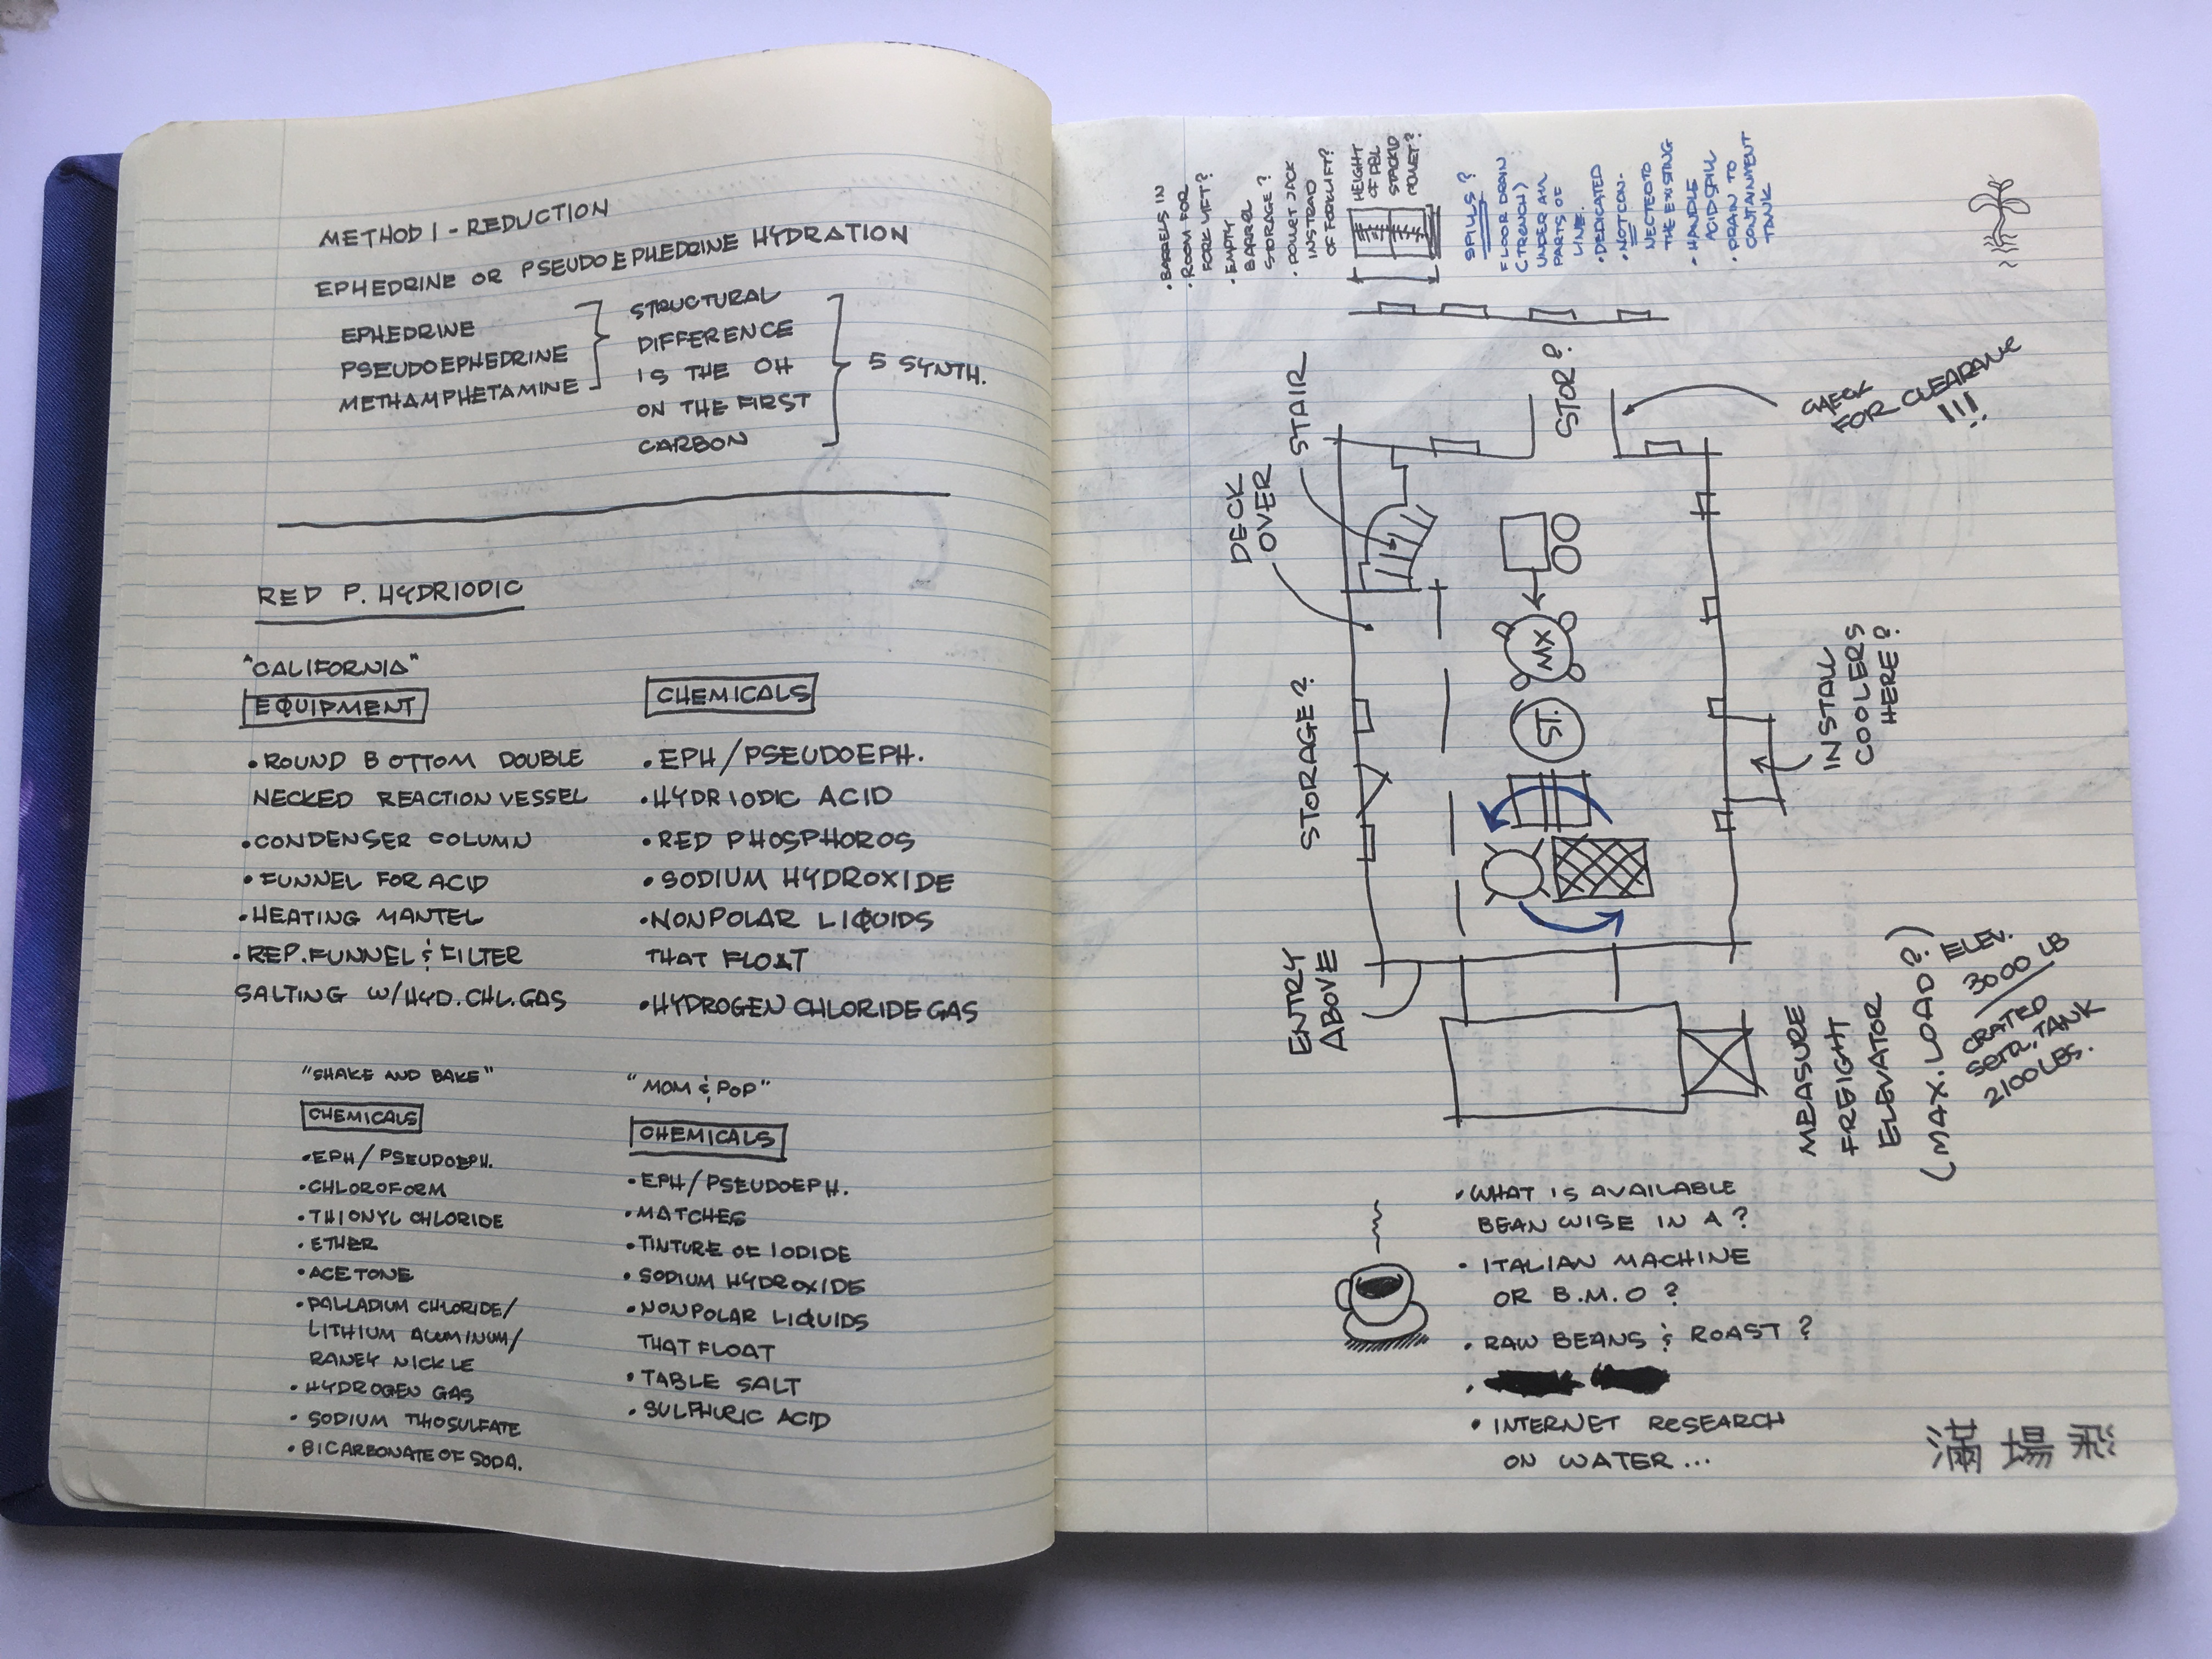 METHOD 1 - REDUCTION
EPHEDRINE OR PSEUDOEPHEDRINE HYDRATION
EPHEDRINE
PSEUDOEPHEDRINE
METHAMPHETAMINE
STRUCTURAL
DIFFERENCE
IS THE OH
ON THE FIRST
CARBON
5 SYNTH.
RED P. HYDRIODIC
"CALIFORNIA"
EQUIPMENT
• ROUND BOTTOM DOUBLE
NECKED REACTION VESSEL
• CONDENSER COLUMN
• FUNNEL FOR ACID
• HEATING MANTEL
• REP. FUNNEL & FILTER
SALTING W/HYD. CHL. GAS
CHEMICALS
• EPH/PSEUDOEPH.
• HYDRIODIC ACID
• RED PHOSPHOROS
• SODIUM HYDROXIDE
• NONPOLAR LIQUIDS
THAT FLOAT
• HYDROGEN CHLORIDE GAS
"SHAKE AND BAKE"
CHEMICALS
• EPH/PSEUDOEPH.
• CHLOROFORM
• THIONYL CHLORIDE
• ETHER
• ACETONE
• PALLADIUM CHLORIDE/
LITHIUM ALUMINUM/
RANEY NICKLE
• HYDROGEN GAS
• SODIUM THIOSULFATE
• BICARBONATE OF SODA.
"MOM & POP"
CHEMICALS
• EPH/PSEUDOEPH.
• MATCHES
• TINTURE OF IODIDE
• SODIUM HYDROXIDE
• NONPOLAR LIQUIDS
THAT FLOAT
• TABLE SALT
• SULPHURIC ACID
• BARRELS IN
• ROOM FOR
FORK LIFT?
• EMPTY
BARREL
STORAGE?
JACK
INSTEAD
OF FORKLIFT?
HEIGHT
OF DBL
STACKED
SPILLS?
FLOOR DRAIN
(TRENCH)
UNDER ALL
PARTS OF
LINE.
• DEDICATED
• NOT CON-
NECTED TO
THE EXISTING
• HANDLE
ACID SPILL
• DRAIN TO
CONTAINMENT
TANK
STAIR
DECK
OVER
STOR?
CHECK
FOR CLEARANC
!!!
STORAGE?
MX
ST.
INSTALL
COOLERS
HERE?
ENTRY
ABOVE
MEASURE
FREIGHT
ELEVATOR
(MAX. LOAD?)
ELEV.
3000 LB
CRATED
TANK
2100 LBS.
• WHAT IS AVAILABLE
BEAN WISE IN A?
• ITALIAN MACHINE
OR B.M.O?
• RAW BEANS & ROAST?
• INTERNET RESEARCH
ON WATER...
滿場飛